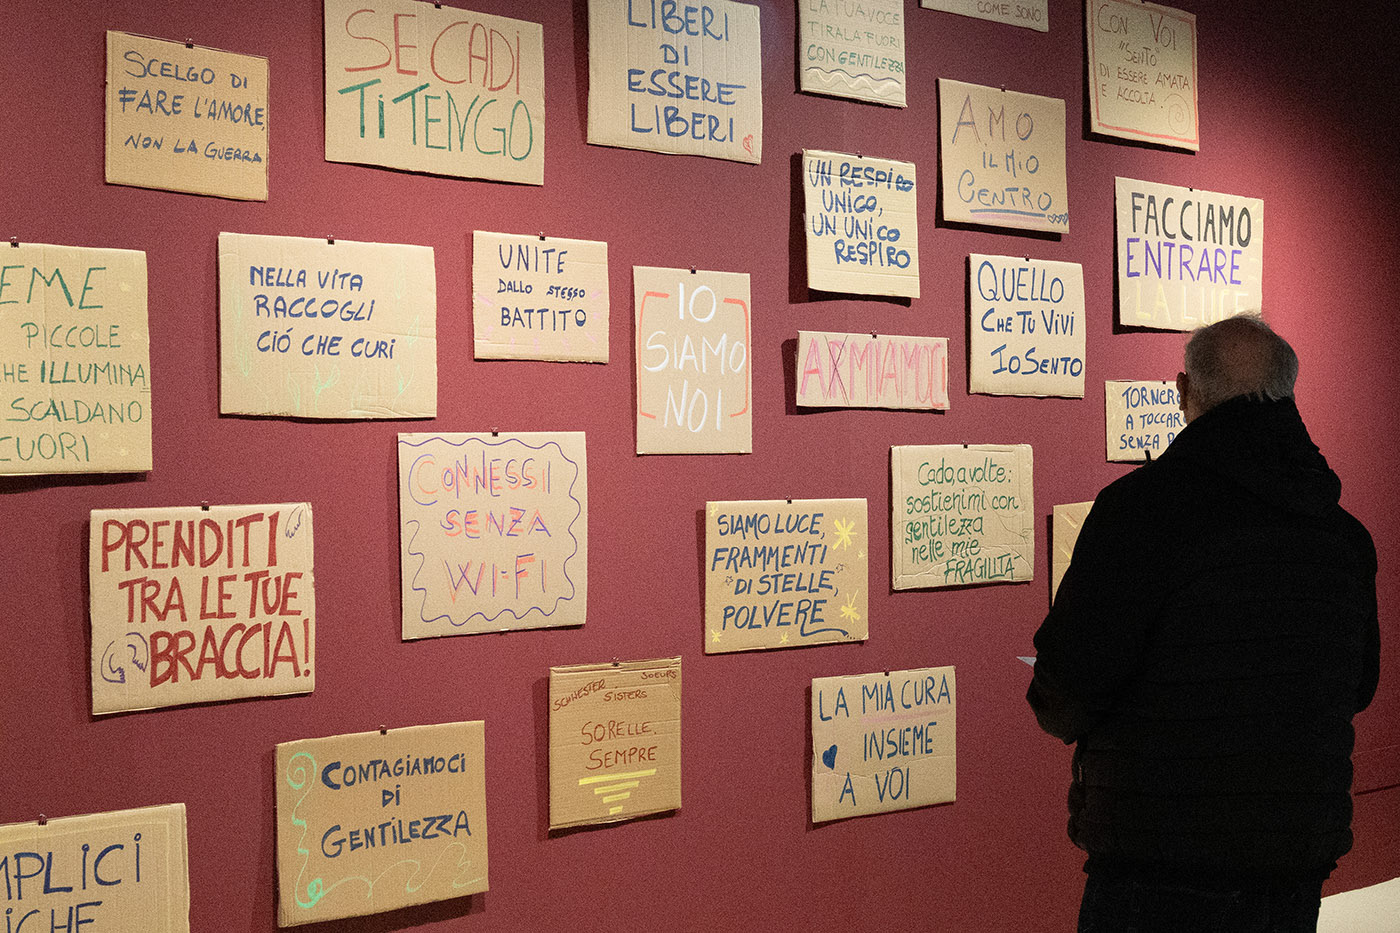 SCELGO DI
FARE L'AMORE,
NON LA GUERRA
SE CADI
TI TENGO
LIBERI
DI
ESSERE
LIBERI
LA TUA VOCE
TIRALA FUORI
CON GENTILEZZA
COME SONO
CON VOI
"SENTO"
DI ESSERE AMATA
E ACCOLTA.
AMO
IL MIO
CENTRO
UN RESPIRO
UNICO,
UN UNICO
RESPIRO
FACCIAMO
ENTRARE
LA LUCE
EME
PICCOLE
HE ILLUMINA
SCALDANO
CUORI
NELLA VITA
RACCOGLI
CIÓ CHE CURI
UNITE
DALLO STESSO
BATTITO
IO
SIAMO
NOI
ARMIAMOCI
QUELLO
CHE TU VIVI
IO SENTO
TORNER
A TOCCAR
SENZA
PRENDITI
TRA LE TUE
BRACCIA!
CONNESSI
SENZA
WI-FI
SIAMO LUCE,
FRAMMENTI
DI STELLE,
POLVERE
Cado, a volte:
sostienimi con
gentilezza
nelle mie
FRAGILITÀ
SCHWESTER SOEURS
SISTERS
SORELLE.
SEMPRE
LA MIA CURA
INSIEME
A VOI
CONTAGIAMOCI
DI
GENTILEZZA
MPLICI
ICHE